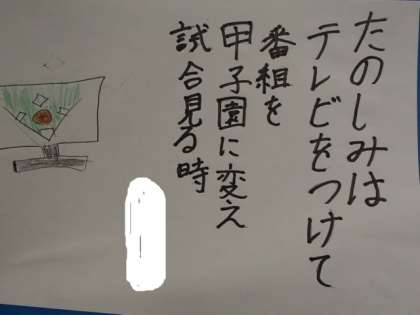 たのしみは
テレビをつけて
番組を
甲子園に変え
試合見る時